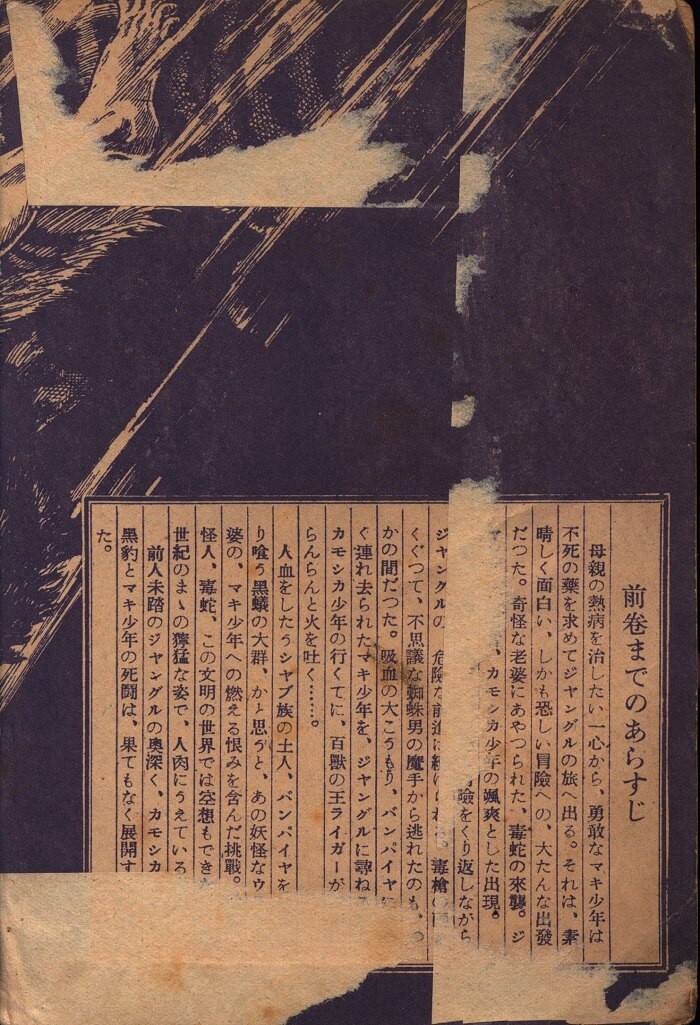 前巻までのあらすじ
母親の熱病を治したい一心から、勇敢なマキ少年は
不死の藥を求めてジャングルの旅へ出る。それは、素
晴しく面白い、しかも恐しい冒險への、大たんな出發
だつた。奇怪な老婆にあやつられた、毒蛇の來襲。ジ
、カモシカ少年の颯爽とした出現。
險をくり返しながら
ジャングルの 危險な前進は 毒槍の
くぐつて、不思議な蜘蛛男の魔手から逃れたのも、つ
かの間だつた。吸血の大こうもり、バンパイヤに
く連れ去られたマキ少年を、ジャングルに尋ね
カモシカ少年の行くてに、百獸の王ライガーが
らんらんと火を吐く……。
人血をしたうシャブ族の土人、バンパイヤを
り喰う黑蟻の大群、かと思うと、あの妖怪なウ
婆の、マキ少年への燃える恨みを含んだ挑戰。
怪人、毒蛇、この文明の世界では空想もでき
世紀のまゝの獰猛な姿で、人肉にうえている
前人未踏のジャングルの奧深く、カモシカ
黑豹とマキ少年の死鬪は、果てもなく展開す
た。